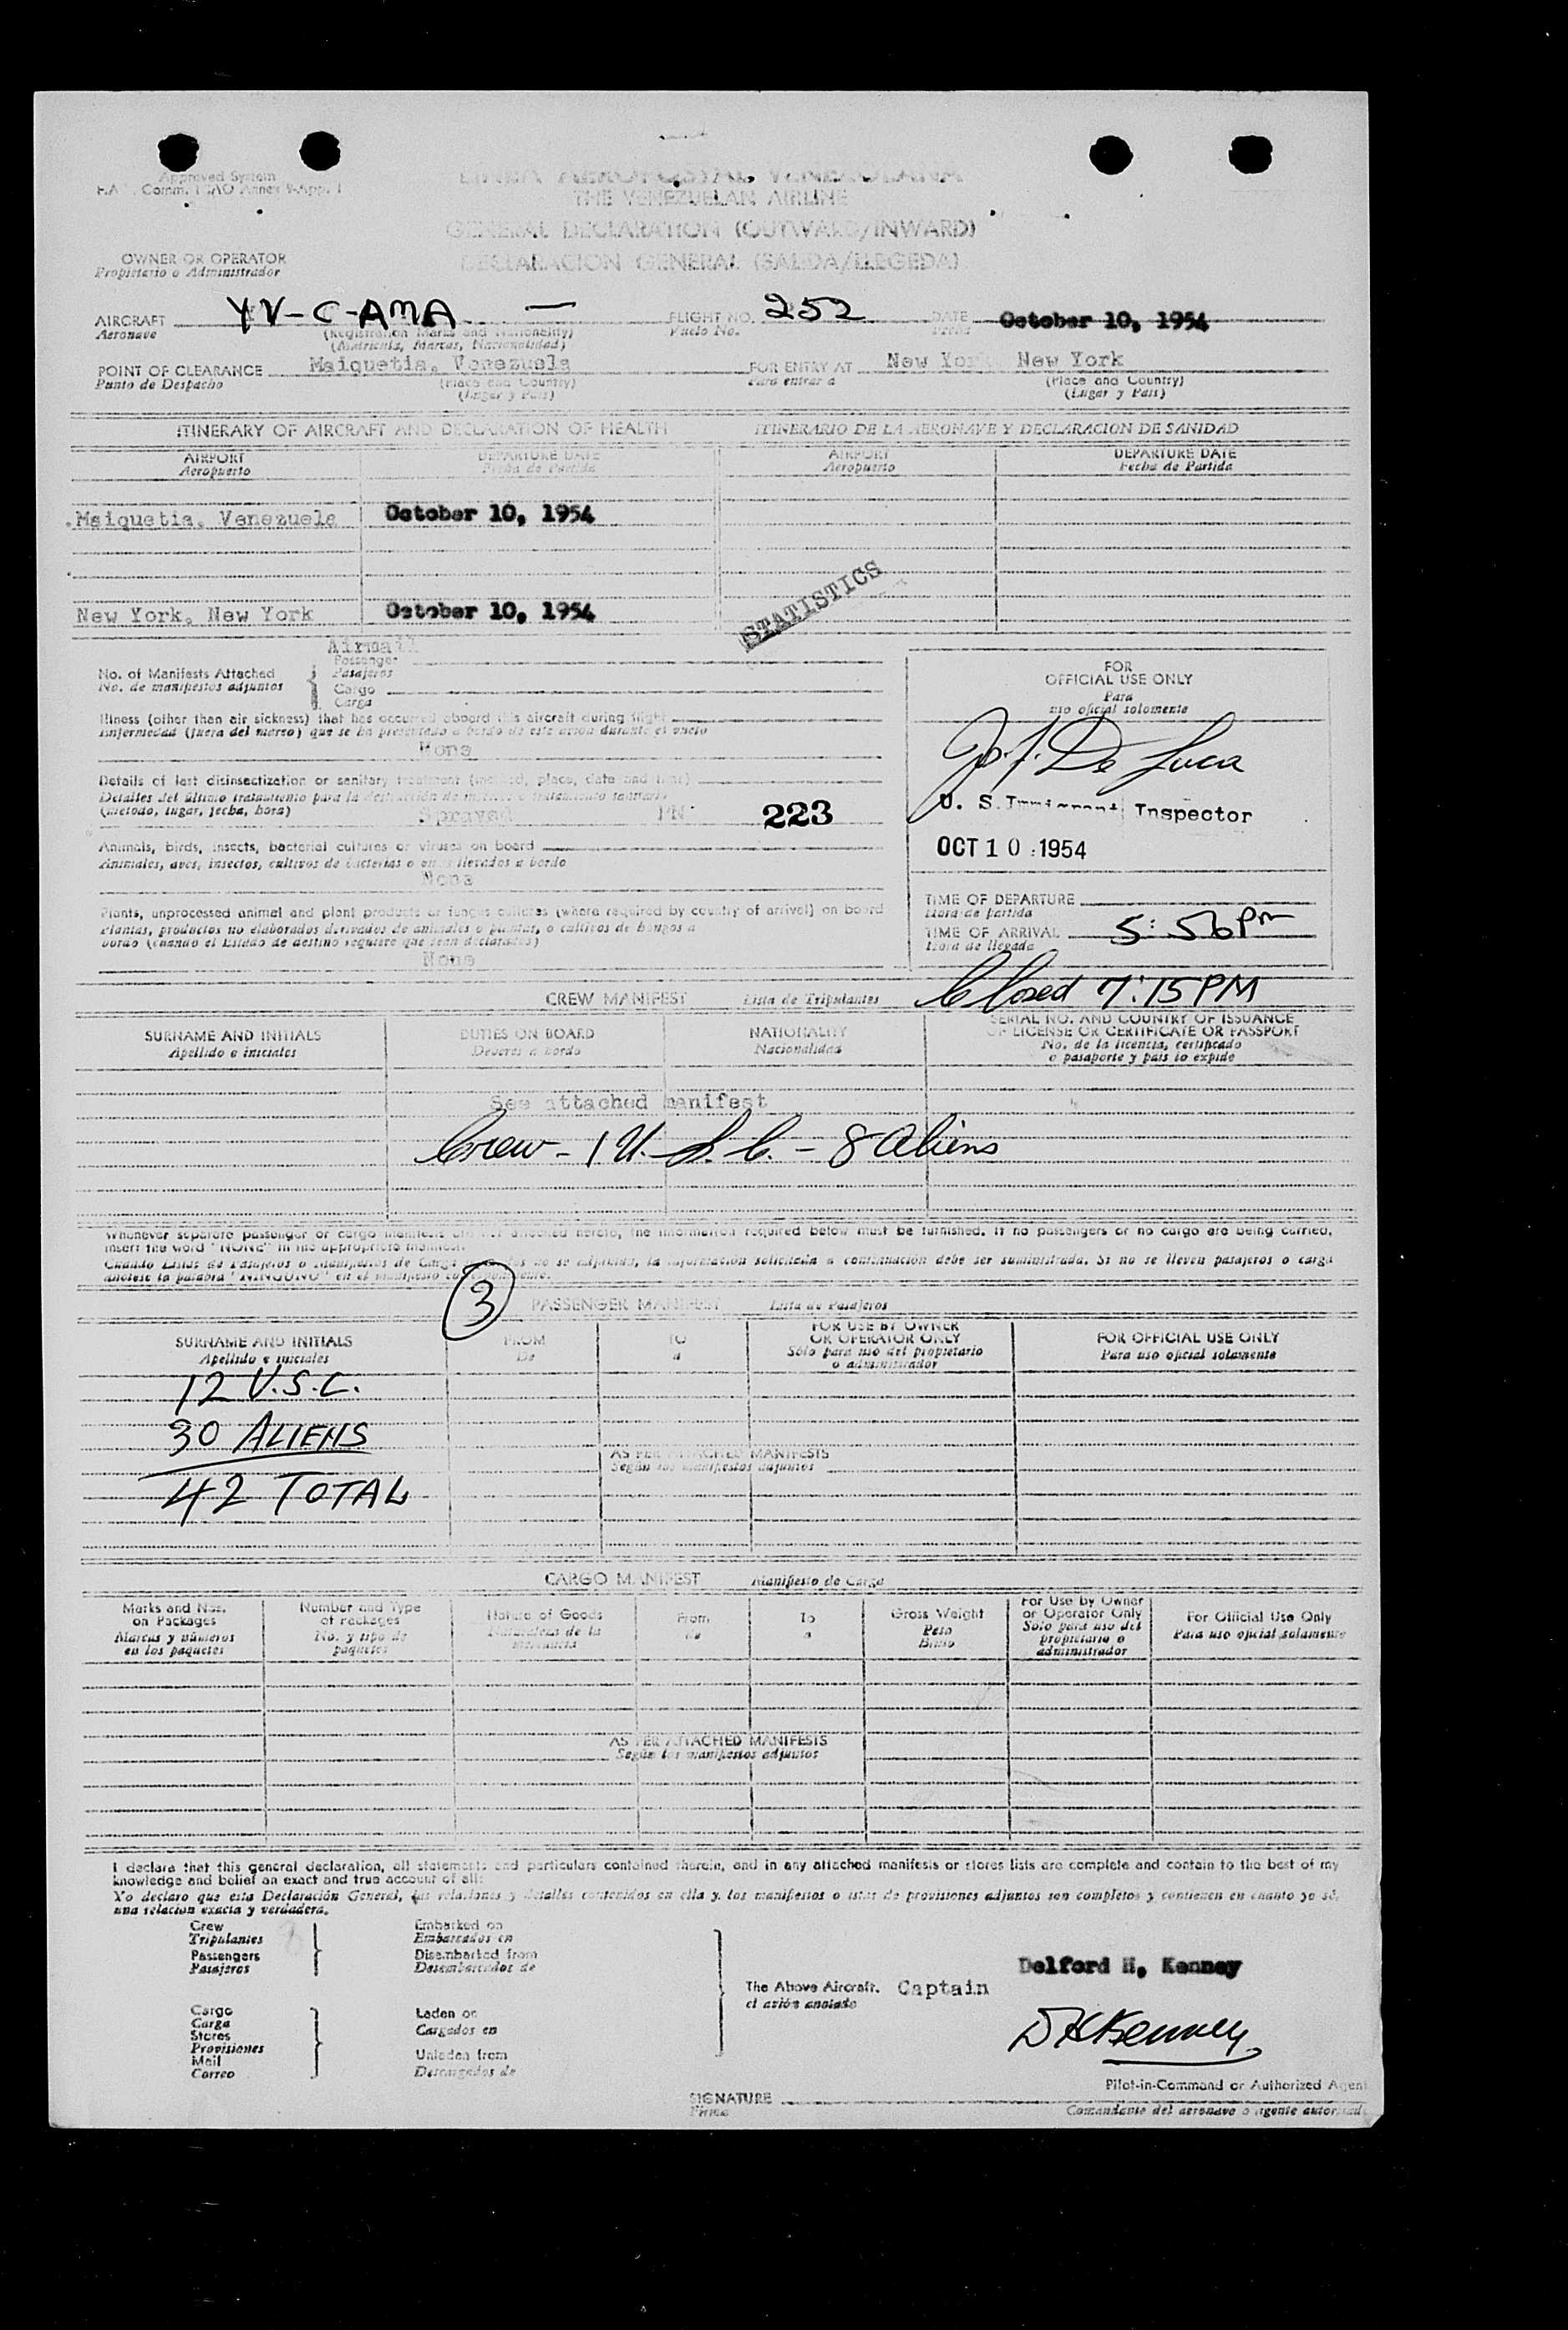 Approved System
Comm. ICAO Annex 9-App. 1
LINEA AEROPOSTAL VENEZOLANA
THE VENEZUELAN AIRLINE
GENERAL DECLARATION (OUTWARD/INWARD)
DECLARACION GENERAL (SALIDA/LLEGEDA)
OWNER OR OPERATOR
Propietario o Administrador
AIRCRAFT YV-C-AMA — FLIGHT NO. 252 DATE October 10, 1954
Aeronave (Registration Marks and Nationality) Vuelo No. Fecha
(Matricula, Marcas, Nacionalidad)
POINT OF CLEARANCE Maiquetia, Venezuela FOR ENTRY AT New York New York
Punto de Despacho (Place and Country) Para entrar a (Place and Country)
(Lugar y Pais) (Lugar y Pais)
ITINERARY OF AIRCRAFT AND DECLARATION OF HEALTH ITINERARIO DE LA AERONAVE Y DECLARACION DE SANIDAD
AIRPORT DEPARTURE DATE AIRPORT DEPARTURE DATE
Aeropuerto Fecha de Partida Aeropuerto Fecha de Partida
Maiquetia, Venezuela October 10, 1954
STATISTICS
New York, New York October 10, 1954
Airmail
No. of Manifests Attached Passenger
No. de manifiestos adjuntos Pasajeros
Cargo
Carga
FOR
OFFICIAL USE ONLY
Para
uso oficial solamente
Illness (other than air sickness) that has occurred aboard this aircraft during flight
Enfermedad (fuera del mareo) que se ha presentado a bordo de este avión durante el vuelo
None
Details of last disinsectization or sanitary treatment (method, place, date and time)
Detalles del último tratamiento para la destrucción de insectos o tratamiento sanitario
(método, lugar, fecha, hora) Sprayed PN 223
Animals, birds, insects, bacterial cultures or viruses on board
Animales, aves, insectos, cultivos de bacterias o virus llevados a bordo
None
Plants, unprocessed animal and plant products or fungus cultures (where required by country of arrival) on board
Plantas, productos no elaborados derivados de animales o plantas, o cultivos de hongos a
bordo (cuando el Estado de destino requiere que sean declarados)
None
De Luca
U. S. Immigrant Inspector
OCT 10 1954
TIME OF DEPARTURE
Hora de partida
TIME OF ARRIVAL 5:56 PM
Hora de llegada
Closed 7:15 PM
CREW MANIFEST Lista de Tripulantes
SURNAME AND INITIALS DUTIES ON BOARD NATIONALITY SERIAL NO. AND COUNTRY OF ISSUANCE
Apellido e iniciales Deberes a bordo Nacionalidad OF LICENSE OR CERTIFICATE OR PASSPORT
No. de la licencia, certificado
o pasaporte y pais lo expide
See attached manifest
Crew - 1 U.S.C. - 8 Aliens
Whenever separate passenger or cargo manifests are not attached hereto, the information required below must be furnished. If no passengers or no cargo are being carried,
insert the word "NONE" in the appropriate manifest.
Cuando Listas de Pasajeros o Manifiestos de Carga no se adjuntan, la información solicitada a continuación debe ser suministrada. Si no se lleven pasajeros o carga
anótese la palabra "NINGUNO" en el manifiesto
3 PASSENGER MANIFEST Lista de Pasajeros
SURNAME AND INITIALS FROM TO FOR USE BY OWNER OR OPERATOR ONLY FOR OFFICIAL USE ONLY
Apellido e iniciales De a Sólo para uso del propietario o administrador Para uso oficial solamente
12 U.S.C.
30 ALIENS
42 TOTAL
AS PER ATTACHED MANIFESTS
Según los manifiestos adjuntos
CARGO MANIFEST Manifiesto de Carga
Marks and Nos. on Packages Number and Type of Packages Nature of Goods From To Gross Weight For Use by Owner or Operator Only For Official Use Only
Marcas y números en los paquetes No. y tipo de paquetes Naturaleza de la mercancia de a Peso Bruto Sólo para uso del propietario o administrador Para uso oficial solamente
AS PER ATTACHED MANIFESTS
Según los manifiestos adjuntos
I declare that this general declaration, all statements and particulars contained therein, and in any attached manifests or stores lists are complete and contain to the best of my
knowledge and belief an exact and true account of all:
Yo declaro que esta Declaración General, las relaciones y detalles contenidos en ella y los manifiestos o listas de provisiones adjuntos son completos y contienen en cuanto yo sé,
una relación exacta y verdadera.
Crew Embarked on
Tripulantes Embarcados en
Passengers Disembarked from
Pasajeros Desembarcados de
Delford H. Kenney
The Above Aircraft. Captain
el avión anotado
Cargo Laden on
Carga Cargados en
Stores
Provisiones
Mail Unladen from
Correo Descargados de
D H Kenney
Pilot-in-Command or Authorized Agent
SIGNATURE
Firma
Comandante del aeronave o agente autorizado